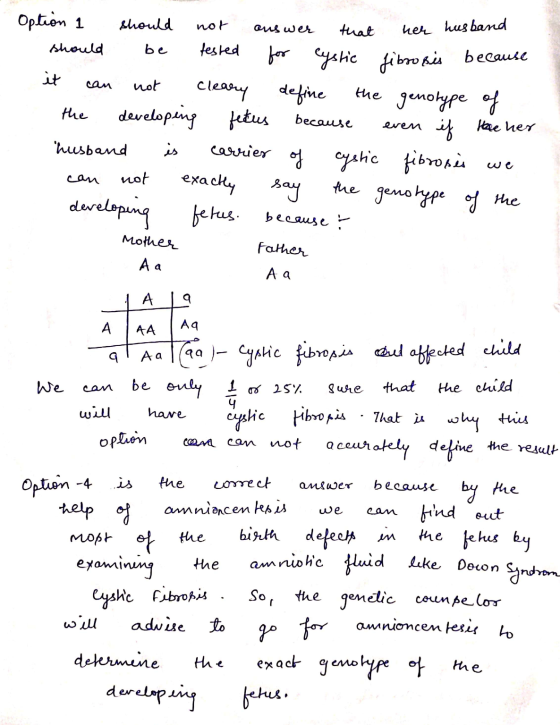 Option 1 should not answer that her husband
should be tested for cystic fibrosis because
it can not cleary define the genotype of
the developing fetus because even if her
husband is carrier of cystic fibrosis we
can not exactly say the genotype of the
developing fetus. because :-
Mother Father
Aa Aa
A a
A AA Aa
a Aa (aa) - Cystic fibrosis affected child
We can be only 1/4 or 25% sure that the child
will have cystic fibrosis. That is why this
option can not accurately define the result
Option-4 is the correct answer because by the
help of amnioncentesis we can find out
most of the birth defects in the fetus by
examining the amniotic fluid like Down Syndrom
Cystic Fibrosis. So, the genetic counselor
will advise to go for amnioncentesis to
determine the exact genotype of the
developing fetus.